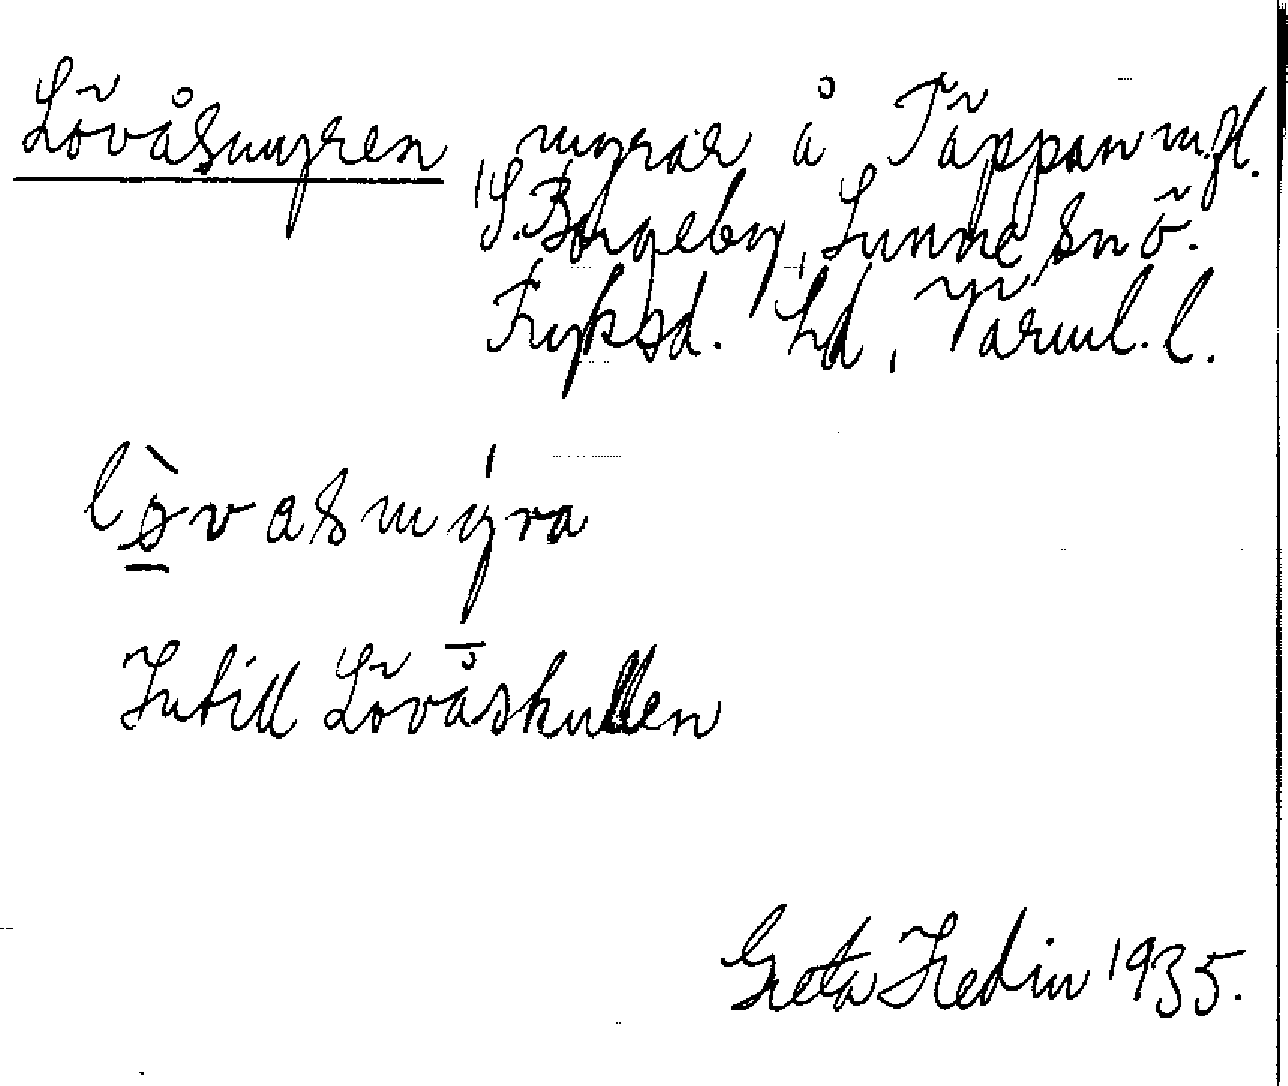 Lövåsmyren myrar å Täppan m.fl.
S. Borgeby, Sunne sn ö.
Fryksd. hd, Värml. l.
lø̀vasmýra
Intill Lövåskullen
Greta Hedin 1935.